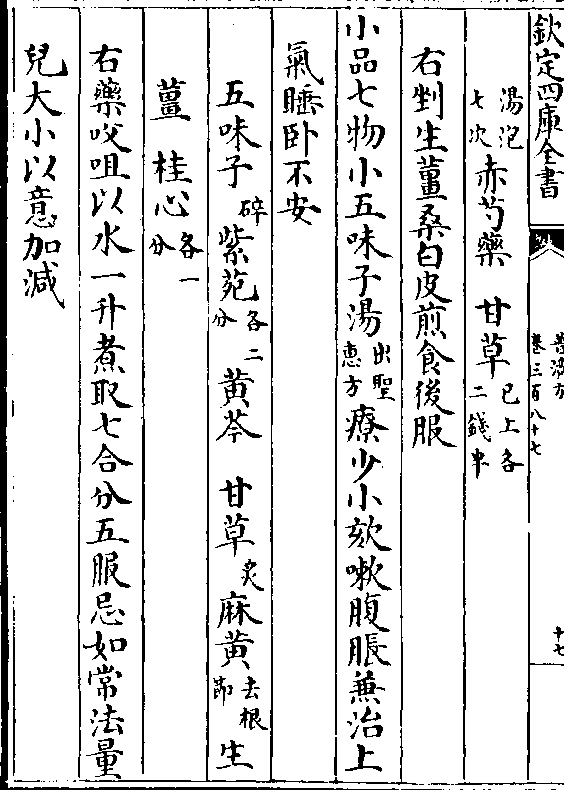 欽定四庫全書
普濟方
卷三百八十七
十七
湯泡七次赤芍藥 甘草已上各二錢半
右剉生薑桑白皮煎食後服
小品七物小五味子湯出聖惠方療少小欬嗽腹脹兼治上
氣睡卧不安
五味子碎紫菀各二分黃芩 甘草炙麻黃去根節生
薑 桂心各一分
右藥㕮咀以水一升煮取七合分五服忌如常法量
兒大小以意加減